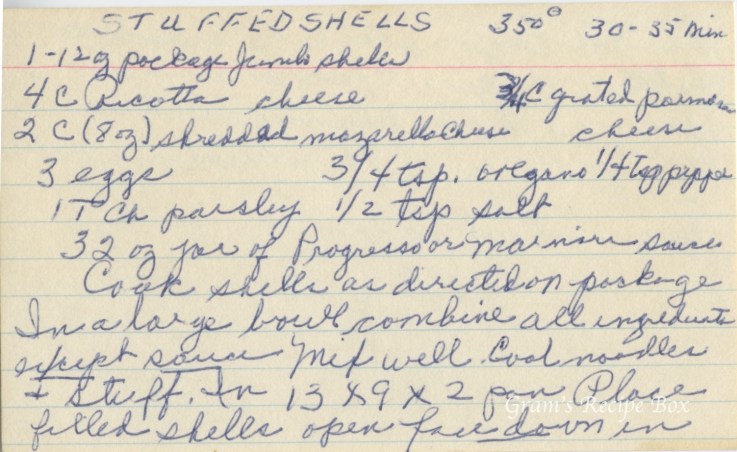 STUFFED SHELLS 350° 30-35 Min
1-12 oz package Jumbo shells
4 C Ricotta cheese 3/4 C grated parmesan
2 C (8 oz) shredded mozarella cheese cheese
3 eggs 3/4 tsp. oregano 1/4 tsp pepper
1 T Ch parsley 1/2 tsp salt
32 oz jar of Progresso or marinara sauce
Cook shells as directed on package
In a large bowl combine all ingredients
except sauce Mix well Cool noodles
+ Stuff. In 13 X 9 X 2 pan Place
filled shells open face down in
Gram's Recipe Box